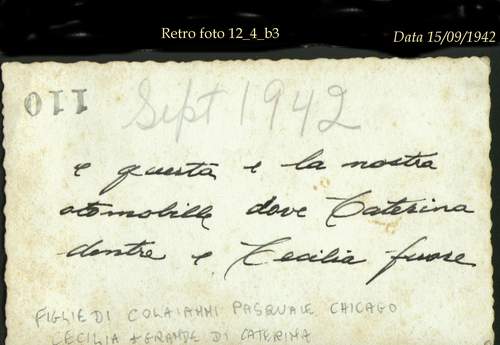 Retro foto 12_4_b3
Data 15/09/1942
110
Sept 1942
e questa e la nostra
otomobille dove Caterina
dentre e Cecilia fuore
FIGLIE DI COLAIANNI PASQUALE CHICAGO
CECILIA + GRANDE DI CATERINA